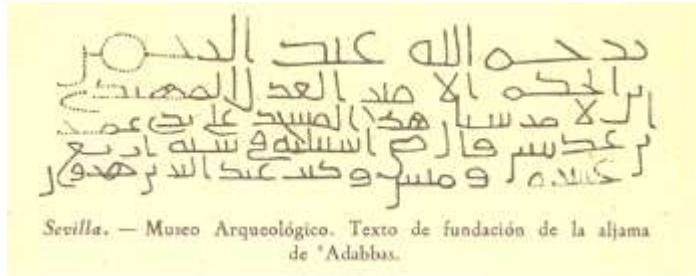 يرحم الله عبد الرحمن
بن الحكم الامير العدل المهتدي
الامر ببنيان هذا المسجد على يدي عمر
بن عدبس قاضي اشبيلية في سنة اربع
عشرة ومئتين وكتب عبد البر بن هرون
Sevilla. — Museo Arqueológico. Texto de fundación de la aljama
de ʿAdabbas.